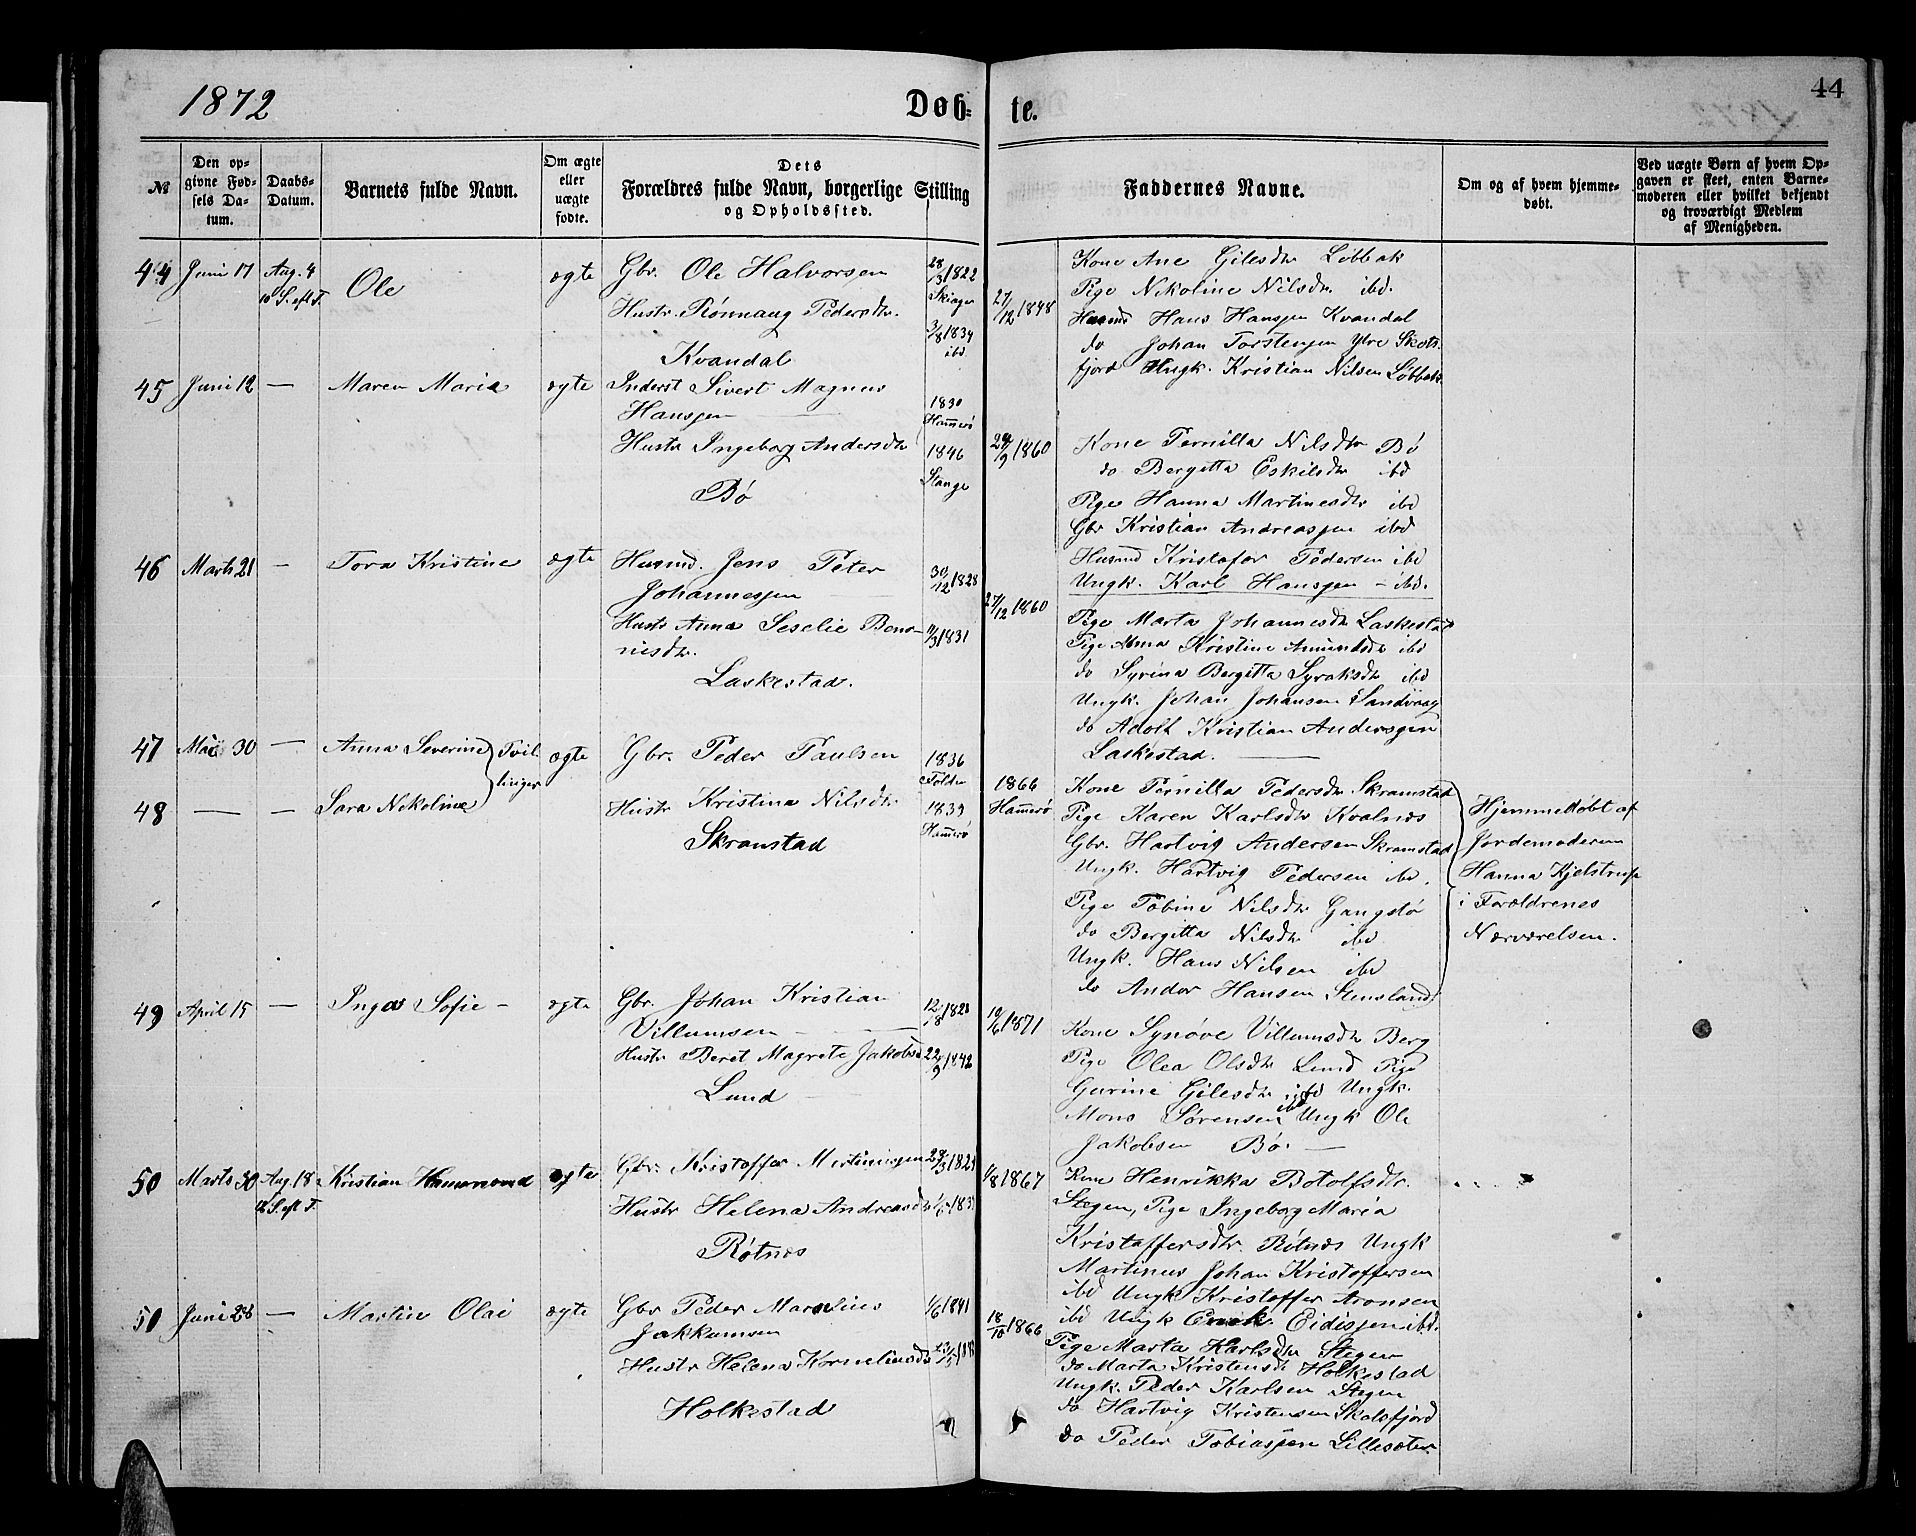 1872
Døb-
te.
44
№
Den op-
givne Fød-
sels Da-
tum.
Daabs-
Datum.
Barnets fulde Navn.
Om ægte
eller
uægte
fødte.
Dets
Forældres fulde Navn, borgerlige Stilling
og Opholdssted.
Faddernes Navne.
Om og af hvem hjemme-
døbt.
Ved uægte Børn af hvem Op-
gaven er skeet, enten Barne-
moderen eller hvilket bekjendt
og troværdigt Medlem
af Menigheden.
44 Juni 17 Aug. 4
10 S. eft T.
Ole
ægte
Gbr. Ole Halvorsen
Hustr. Rønnaug Pedersdtr.
Kvandal
28/3 1822
Skiager
3/8 1834
ibd
27/12 1848
Kone Ane Gilesdtr Løbbak
Pige Nekoline Nilsdtr ibd.
Husmd Hans Hansen Kvandal
do Johan Torstensen Ytre Skots-
fjord Ungk. Kristian Nilsen Løbbak
45 Juni 12 —
Maren Maria
ægte
Inderst Sivert Magnus
Hansen
Hustr Ingeborg Andersdtr
Bø
1830
Hammerø
1846
Stange
24/9 1860
Kone Pernilla Nilsdtr Bø
do Bergitta Eskilsdtr ibd
Pige Hanna Martinesdtr ibd
Gbr Kristian Andreassen ibd
Husmd Kristofer Pedersen ibd
Ungk. Karl Hansen - ibd.
46 Marts 21 —
Tora Kristine
ægte
Husmd. Jens Peter
Johannessen
Hustr Anna Seselie Beno-
nisdtr.
Laskestad.
30/12 1828
1831
27/12 1860
Pige Marta Johannesdtr Laskestad
Pige Anna Kristine Amundsdtr ibd
do Syrina Bergitta Syraksdtr ibd
Ungk. Johan Johansen Sandvaag
do Adolt Kristian Anderssen
Laskestad.
47 Mai 30 —
Anna Severine
Tvil-
linger
ægte
Gbr. Peder Paulsen
1836
Folden
48 — —
Sara Nekoline
Hustr Kristina Nilsdtr
Skramstad
1839
Hammerø
1866
Hammerø
Kone Pernilla Pedersdtr Skramstad
Pige Karen Karlsdtr Kvalnes
Gbr. Hartvig Andersen Skramstad
Ungk. Hartvig Pedersen ibd.
Pige Tobine Nilsdtr Gangstø
do Bergitta Nilsdtr ibd
Ungk. Hans Nilsen ibd
do Andor Hansen Stensland
Hjemmedøbt af
Jordemoderen
Hanna Kjelstrup
i Forældrenes
Nærværelsen.
49 April 15 —
Inga Sofie -
ægte
Gbr. Johan Kristian
Villumsen
Hustr Beret Magrete Jakobsd
Lund
12/8 1828
22/9 1842
10/6 1871
Kone Synøve Villumsdtr Berg
Pige Olea Olsdtr Lund Pige
Gurine Gilesdtr ibd Ungk.
Mons Sørensen ibd Ungk Ole
Jakobsen Bø. —
50 Marts 30 Aug. 18
12 S. eft T.
Kristian Hammond
ægte
Gbr. Kristoffer Martinussen
Hustr Helena Andreasdtr
Røtnes
1/8 1867
Kone Henrikka Botolfsdtr.
Stegen, Pige Ingeborg Maria
Kristoffersdtr. Røtnes Ungk
Martinus Johan Kristoffersen
ibd Ungk Kristoffer Aronsen
ibd Ungk Enok Eidissen ibd.
51 Juni 28 —
Martin Olai
ægte
Gbr Peder Marelius
Jakkumsen
Hustr Helena Kornelinsdtr
Holkestad
1/6 1841
18/10 1866
Pige Marta Karlsdtr Stegen
do Marta Kristensdtr Holkestad
Ungk. Peder Karlsen Stegen
do Hartvig Kristensen Skotsfjord
do Peder Tobiassen Lillesæter